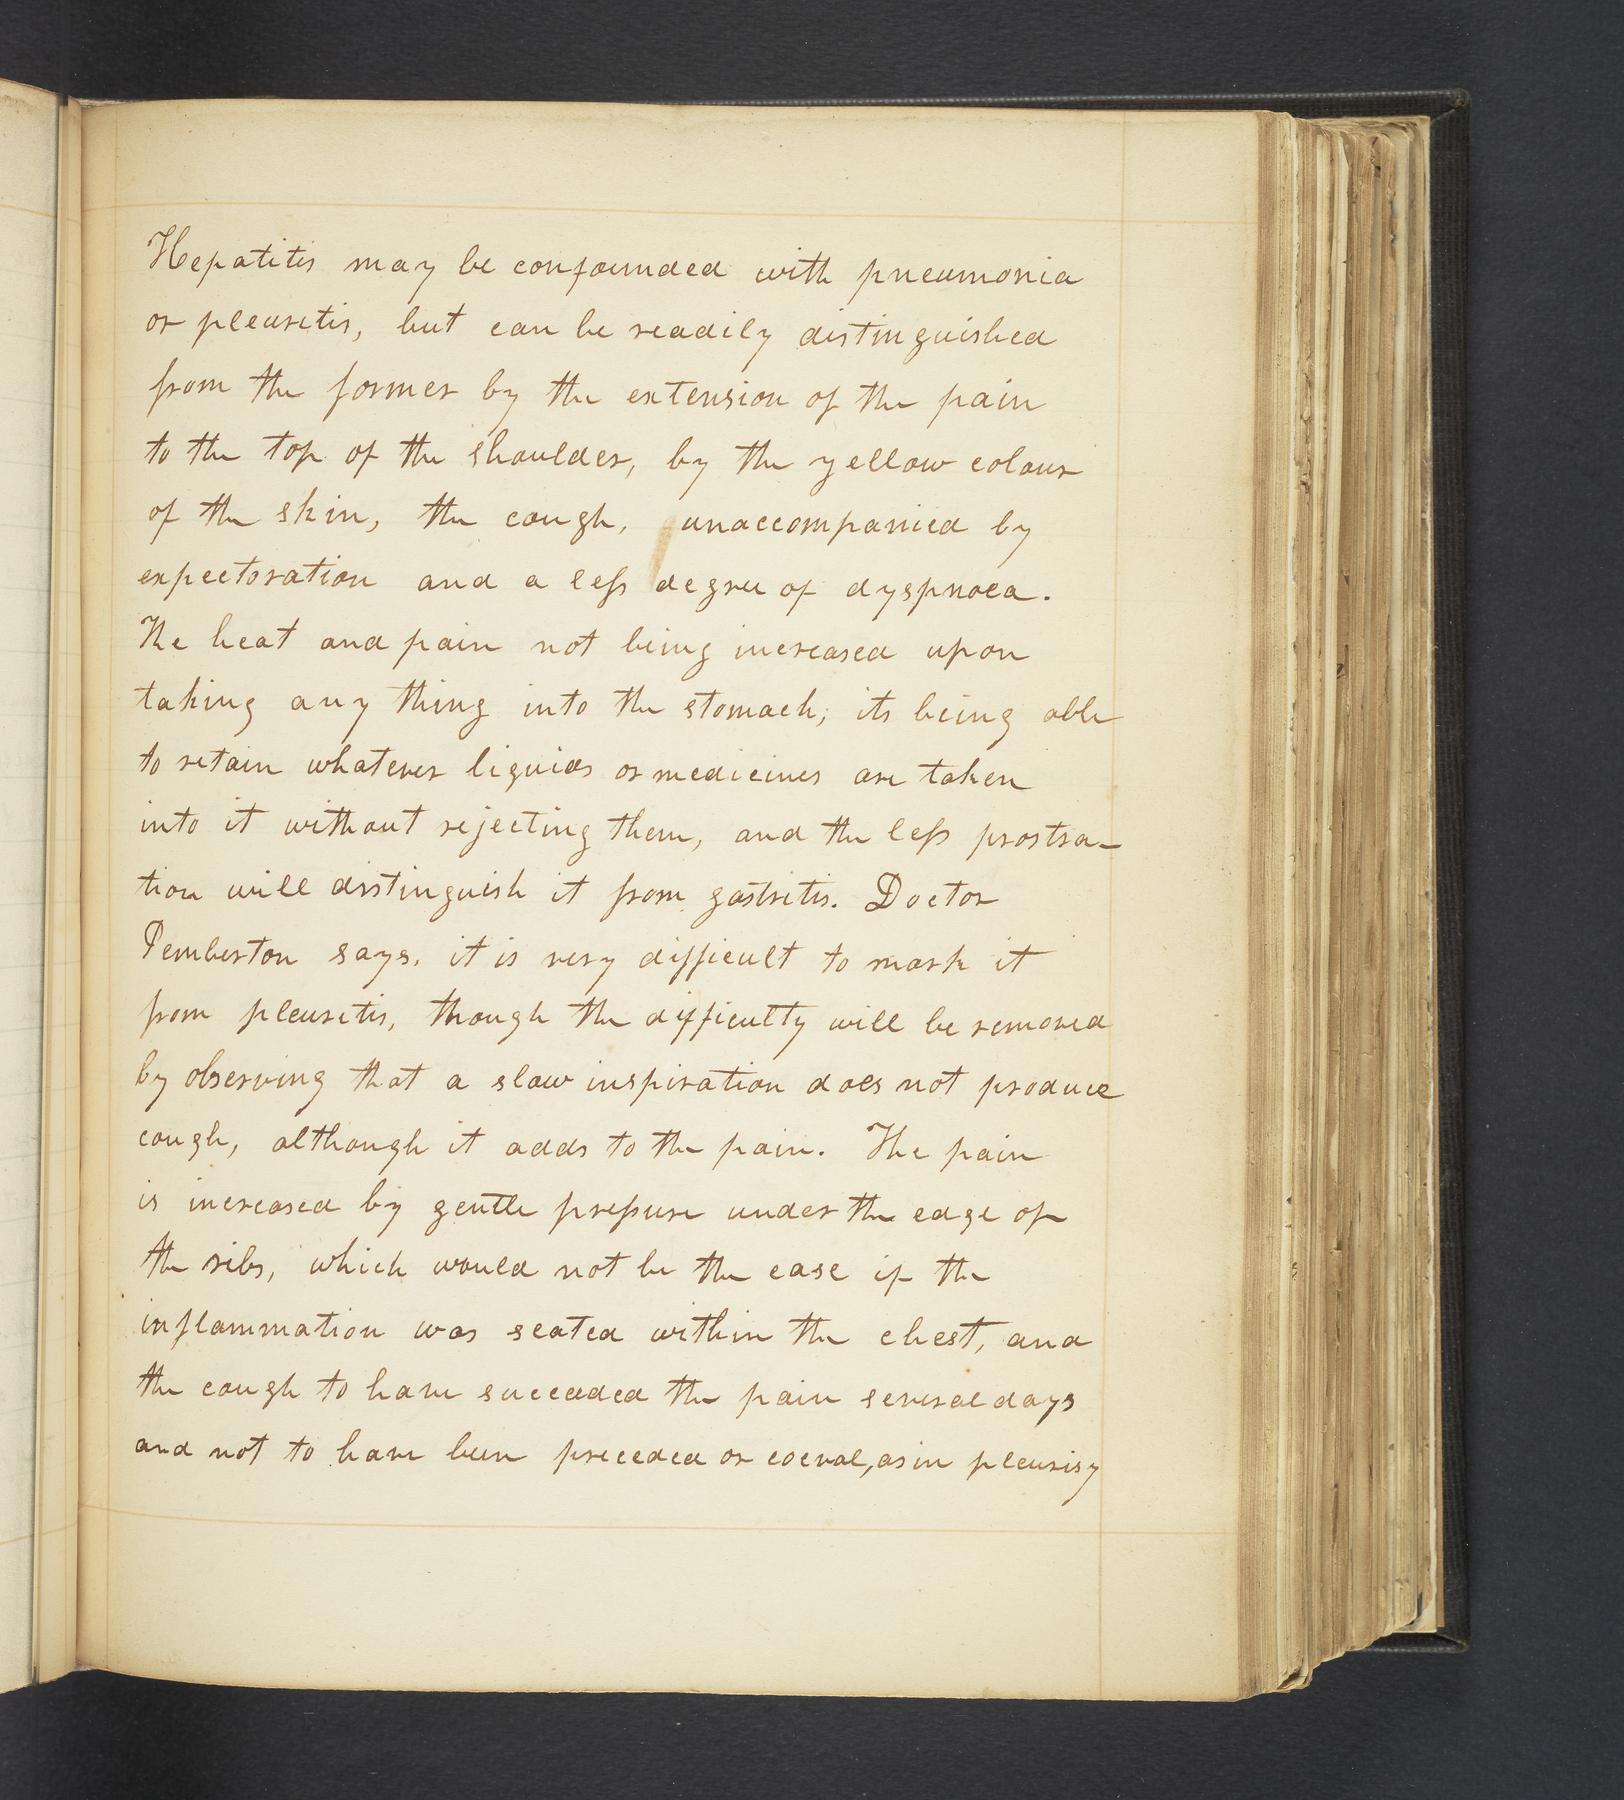 Hepatitis may be confounded with pneumonia
or pleuritis, but can be readily distinguished
from the former by the extension of the pain
to the top of the shoulder, by the yellow colour
of the skin, the cough, unaccompanied by
expectoration and a less degree of dyspnoea.
The heat and pain not being increased upon
taking any thing into the stomach; its being able
to retain whatever liquids or medicines are taken
into it without rejecting them, and the less prostra-
tion will distinguish it from gastritis. Doctor
Pemberton says, it is very difficult to mark it
from pleuritis, though the difficulty will be removed
by observing that a slow inspiration does not produce
cough, although it adds to the pain. The pain
is increased by gentle pressure under the edge of
the ribs, which would not be the case if the
inflammation was seated within the chest, and
the cough to have succeeded the pain several days
and not to have been preceded or coeval, as in pleurisy